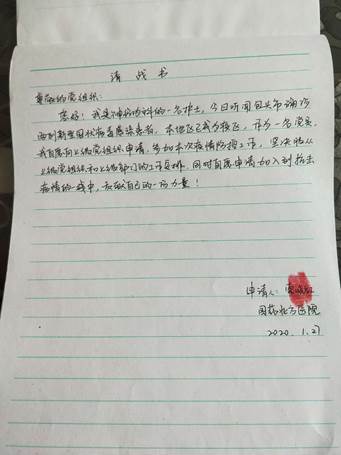 请战书
尊敬的党组织:
您好!我是神经内科的一名护士,今日听闻包头市确诊
两例新型冠状病毒感染患者,本人 作为一名党员
我自愿向上级党组织申请,参加本次疫情防控工作,坚决服从
上级党组织和上级部门的工作安排,同时自愿申请加入到抗击
疫情的一线中,贡献自己的一份力量!
申请人:
国药北方医院
2020.1.27